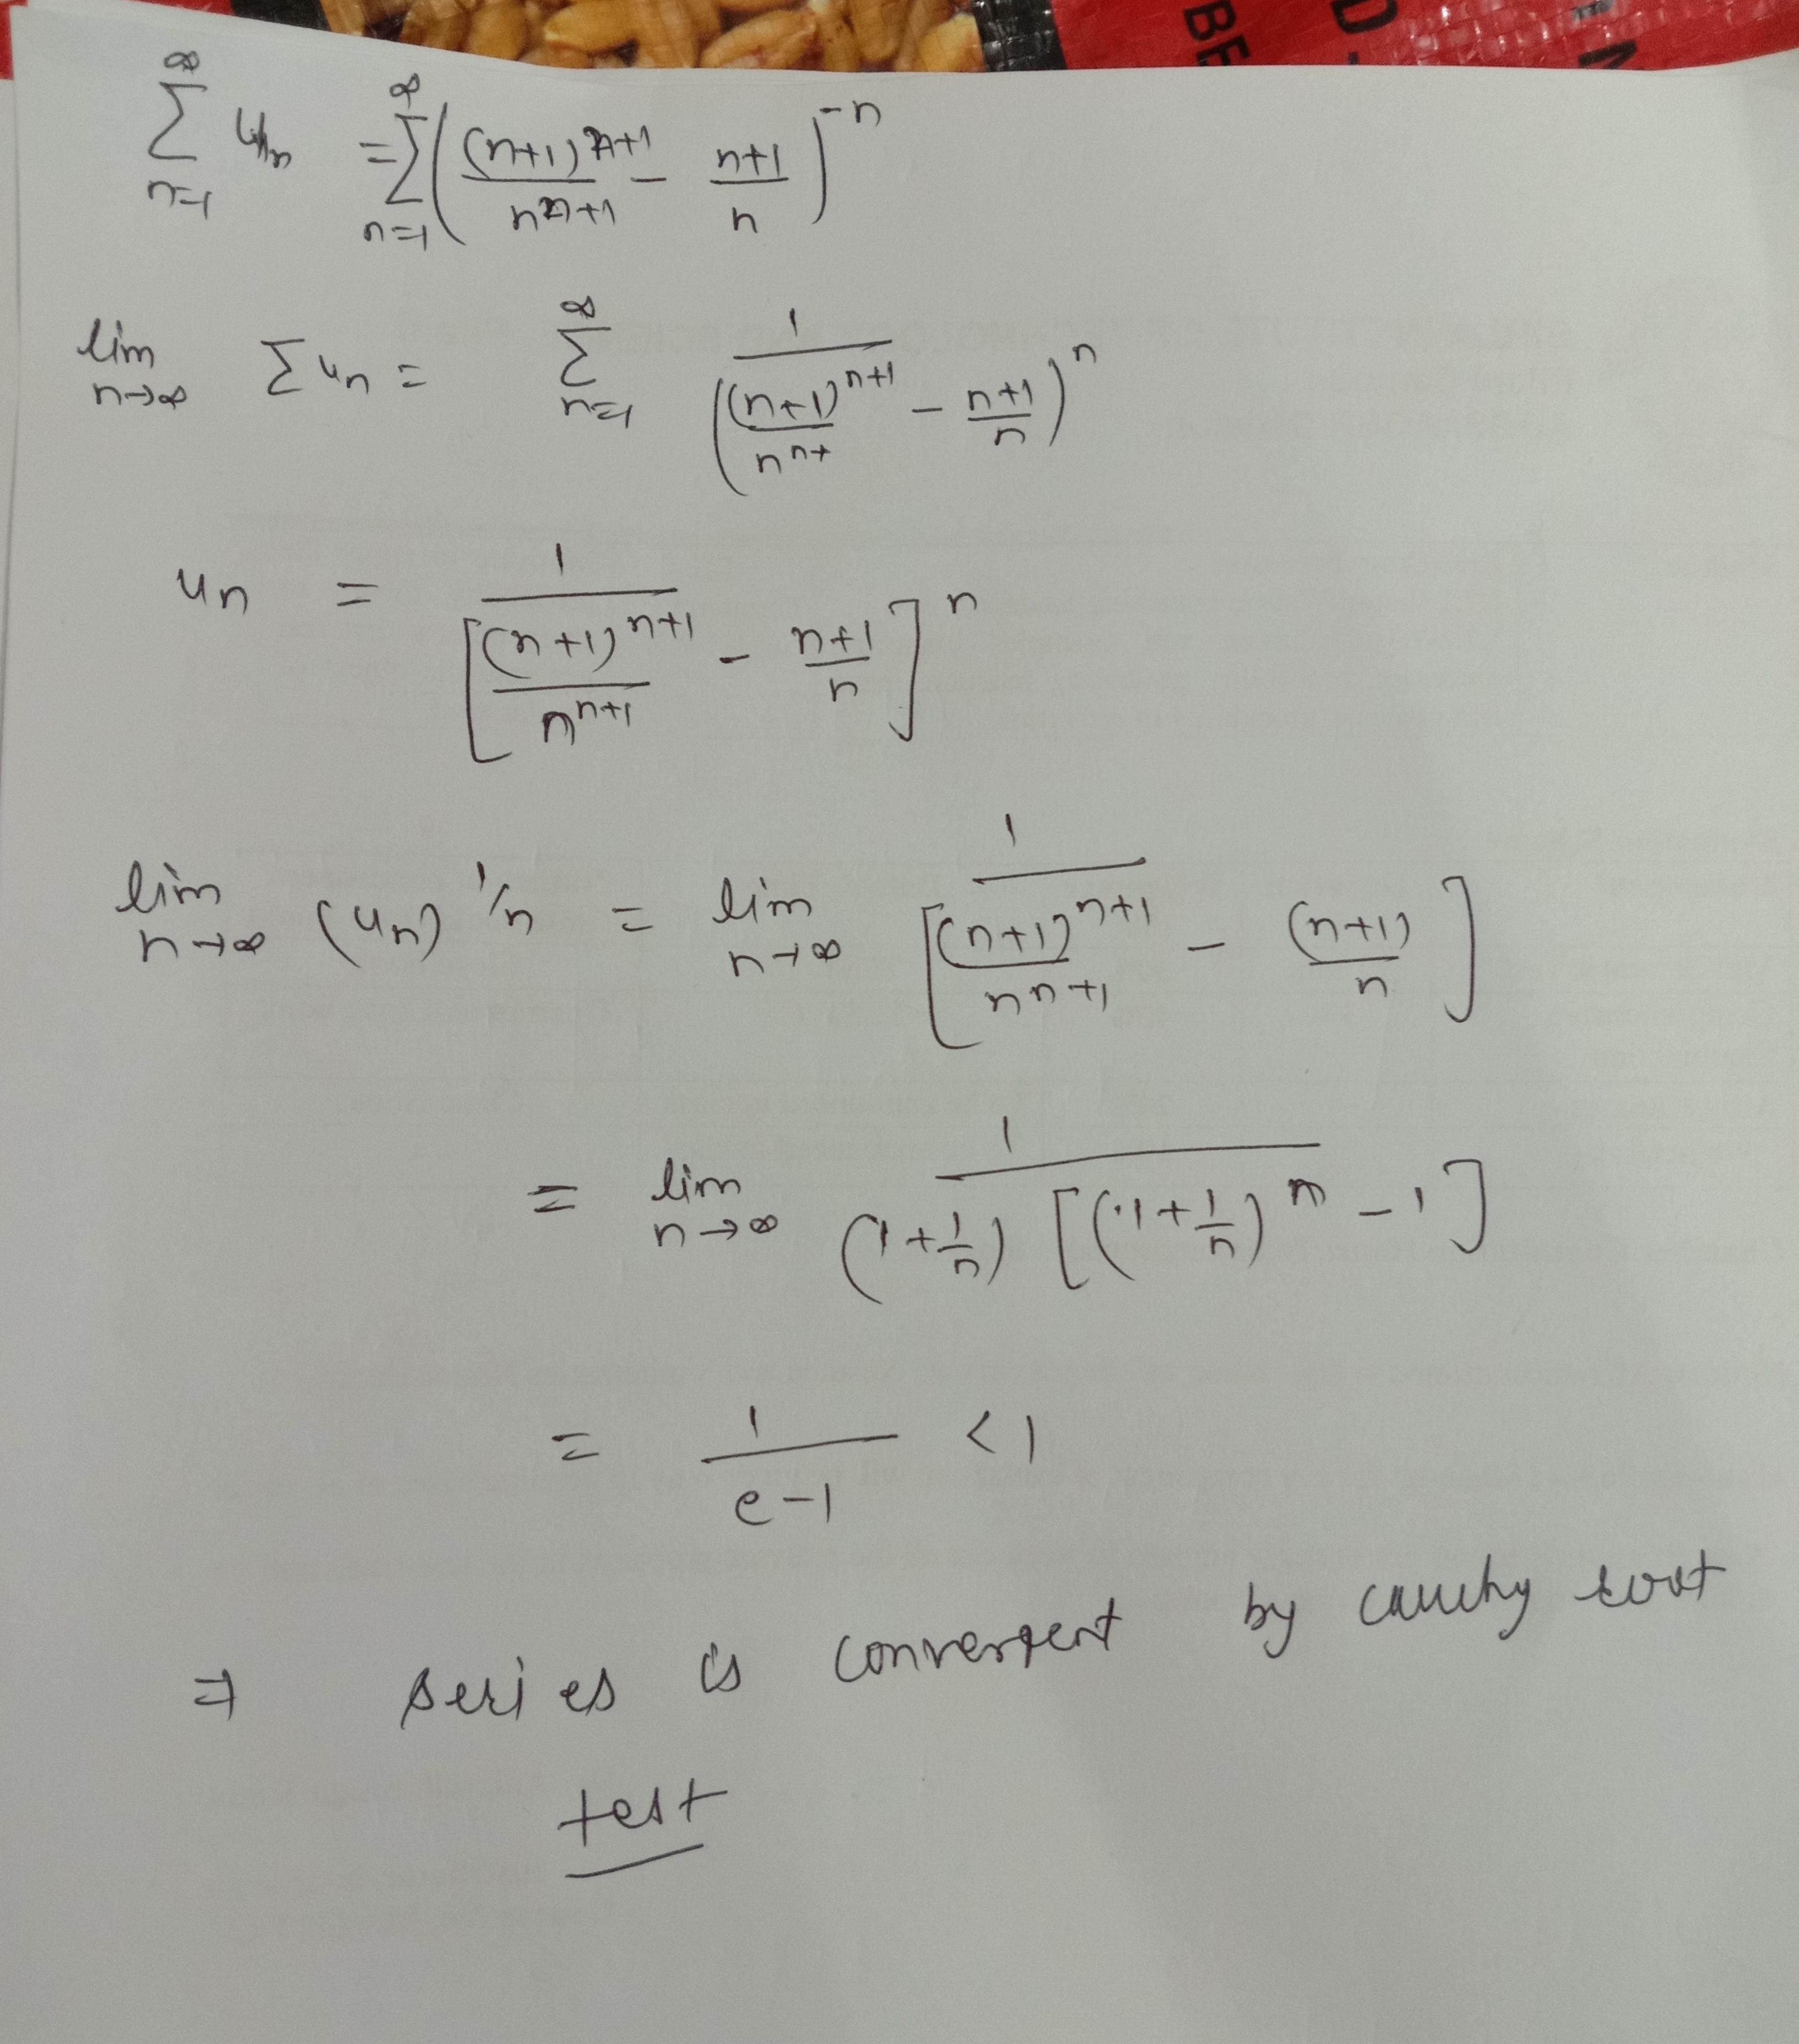 BE
D-
\sum_{n=1}^{\infty} u_n = \sum_{n=1}^{\infty} \left( \frac{(n+1)^{n+1}}{n^{n+1}} - \frac{n+1}{n} \right)^{-n}
\lim_{n \to \infty} \sum u_n = \sum_{n=1}^{\infty} \frac{1}{\left( \frac{(n+1)^{n+1}}{n^{n+}} - \frac{n+1}{n} \right)^n}
u_n = \frac{1}{\left[ \frac{(n+1)^{n+1}}{n^{n+1}} - \frac{n+1}{n} \right]^n}
\lim_{n \to \infty} (u_n)^{1/n} = \lim_{n \to \infty} \frac{1}{\left[ \frac{(n+1)^{n+1}}{n^{n+1}} - \frac{(n+1)}{n} \right]}
= \lim_{n \to \infty} \frac{1}{(1+\frac{1}{n}) \left[ (1+\frac{1}{n})^n - 1 \right]}
= \frac{1}{e-1} < 1
⇒ series is convergent by cauchy root
test